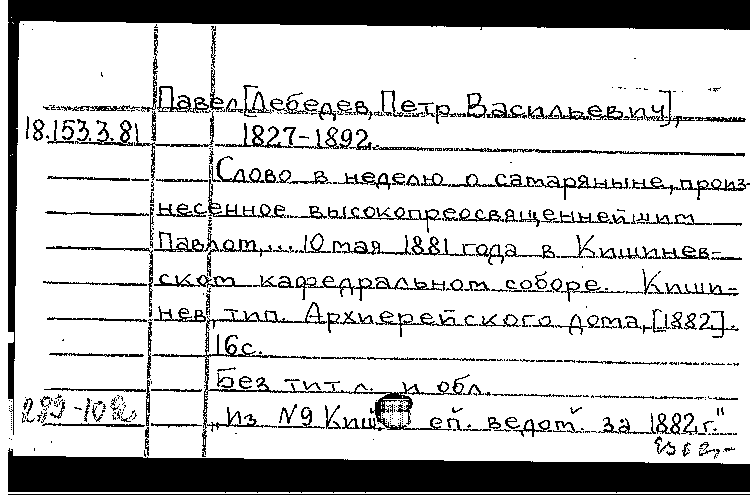 Павел [Лебедев, Петр Васильевич],
18.153.3.81 1827-1892.
Слово в неделю о самаряныне, произ-
несенное высокопреосвященнейшим
Павлом,... 10 мая 1881 года в Кишинев-
ском кафедральном соборе. Киши-
нев, тип. Архиерейского дома, [1882].
16с.
Без тит. л. и обл.
„Из №9 Киш. еп. ведом. за 1882 г."